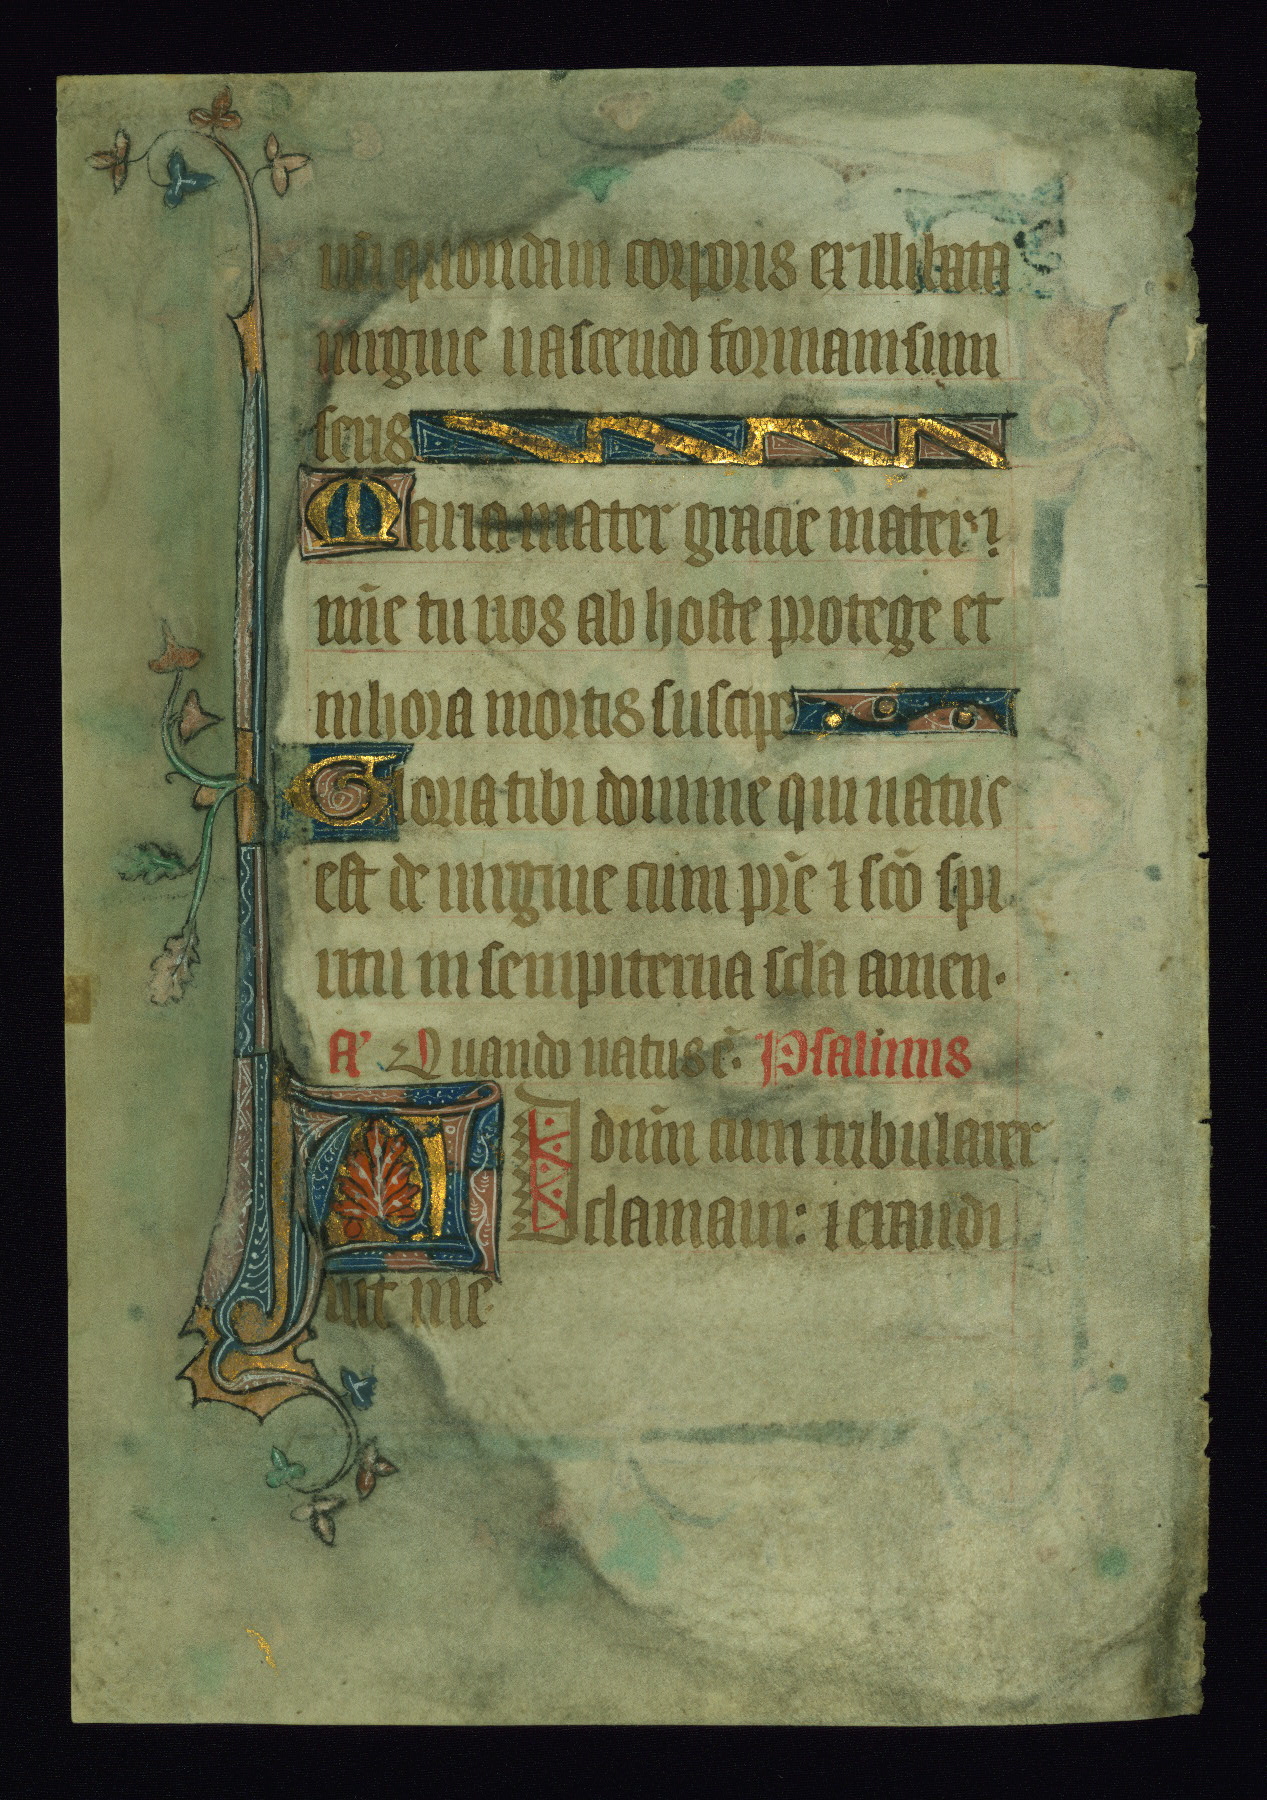 nr̄i quondam corporis ex illibata
uirgine nascendo formam sum
seris
Maria mater gracie mater mi
mīe tu nos ab hoste protege et
in hora mortis suscipe
Gloria tibi domine qui natus
est de uirgine cum pr̄e ⁊ sc̄o spi
ritu in sempiterna scl̄a amen.
A' Quando natus ē. Psalmus
AD dn̄m cum tribularer
clamaui: ⁊ exaudi
uit me